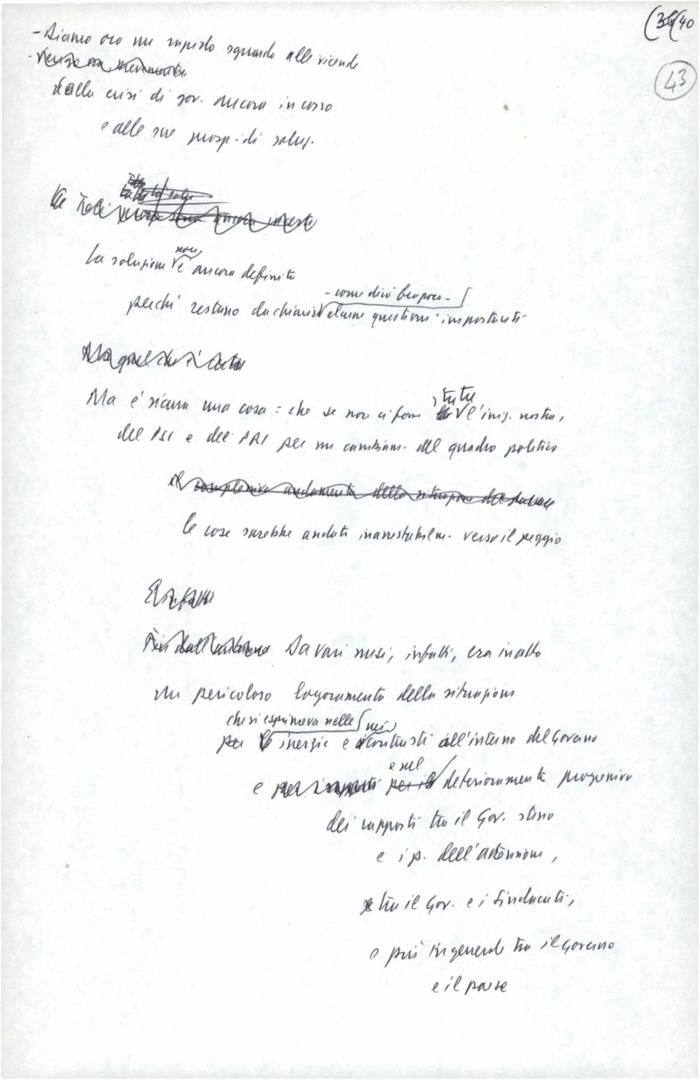 (39(40
43
- Diamo ora un rapido sguardo alle vicende
della crisi di gov. ancora in corso
e alle sue prosp. di soluz.
La soluzione non è ancora definita
- come dirò tra poco -
perché restano da chiarire alcune questioni importanti
Ma è sicura una cosa: che se non ci fosse stata l'iniz. nostra,
del PSI e del PRI per un cambiam. del quadro politico
le cose sarebbe andate inarrestabilm. verso il peggio
Da vari mesi, infatti, era in atto
un pericoloso logoramento della situazione
che si esprimeva nelle nei
inerzie e contrasti all'interno del Governo
e nel
e deterioramento progressivo
dei rapporti tra il Gov. stesso
e i p. dell'astensione,
tra il Gov. e i Sindacati,
e più in generale tra il Governo
e il paese